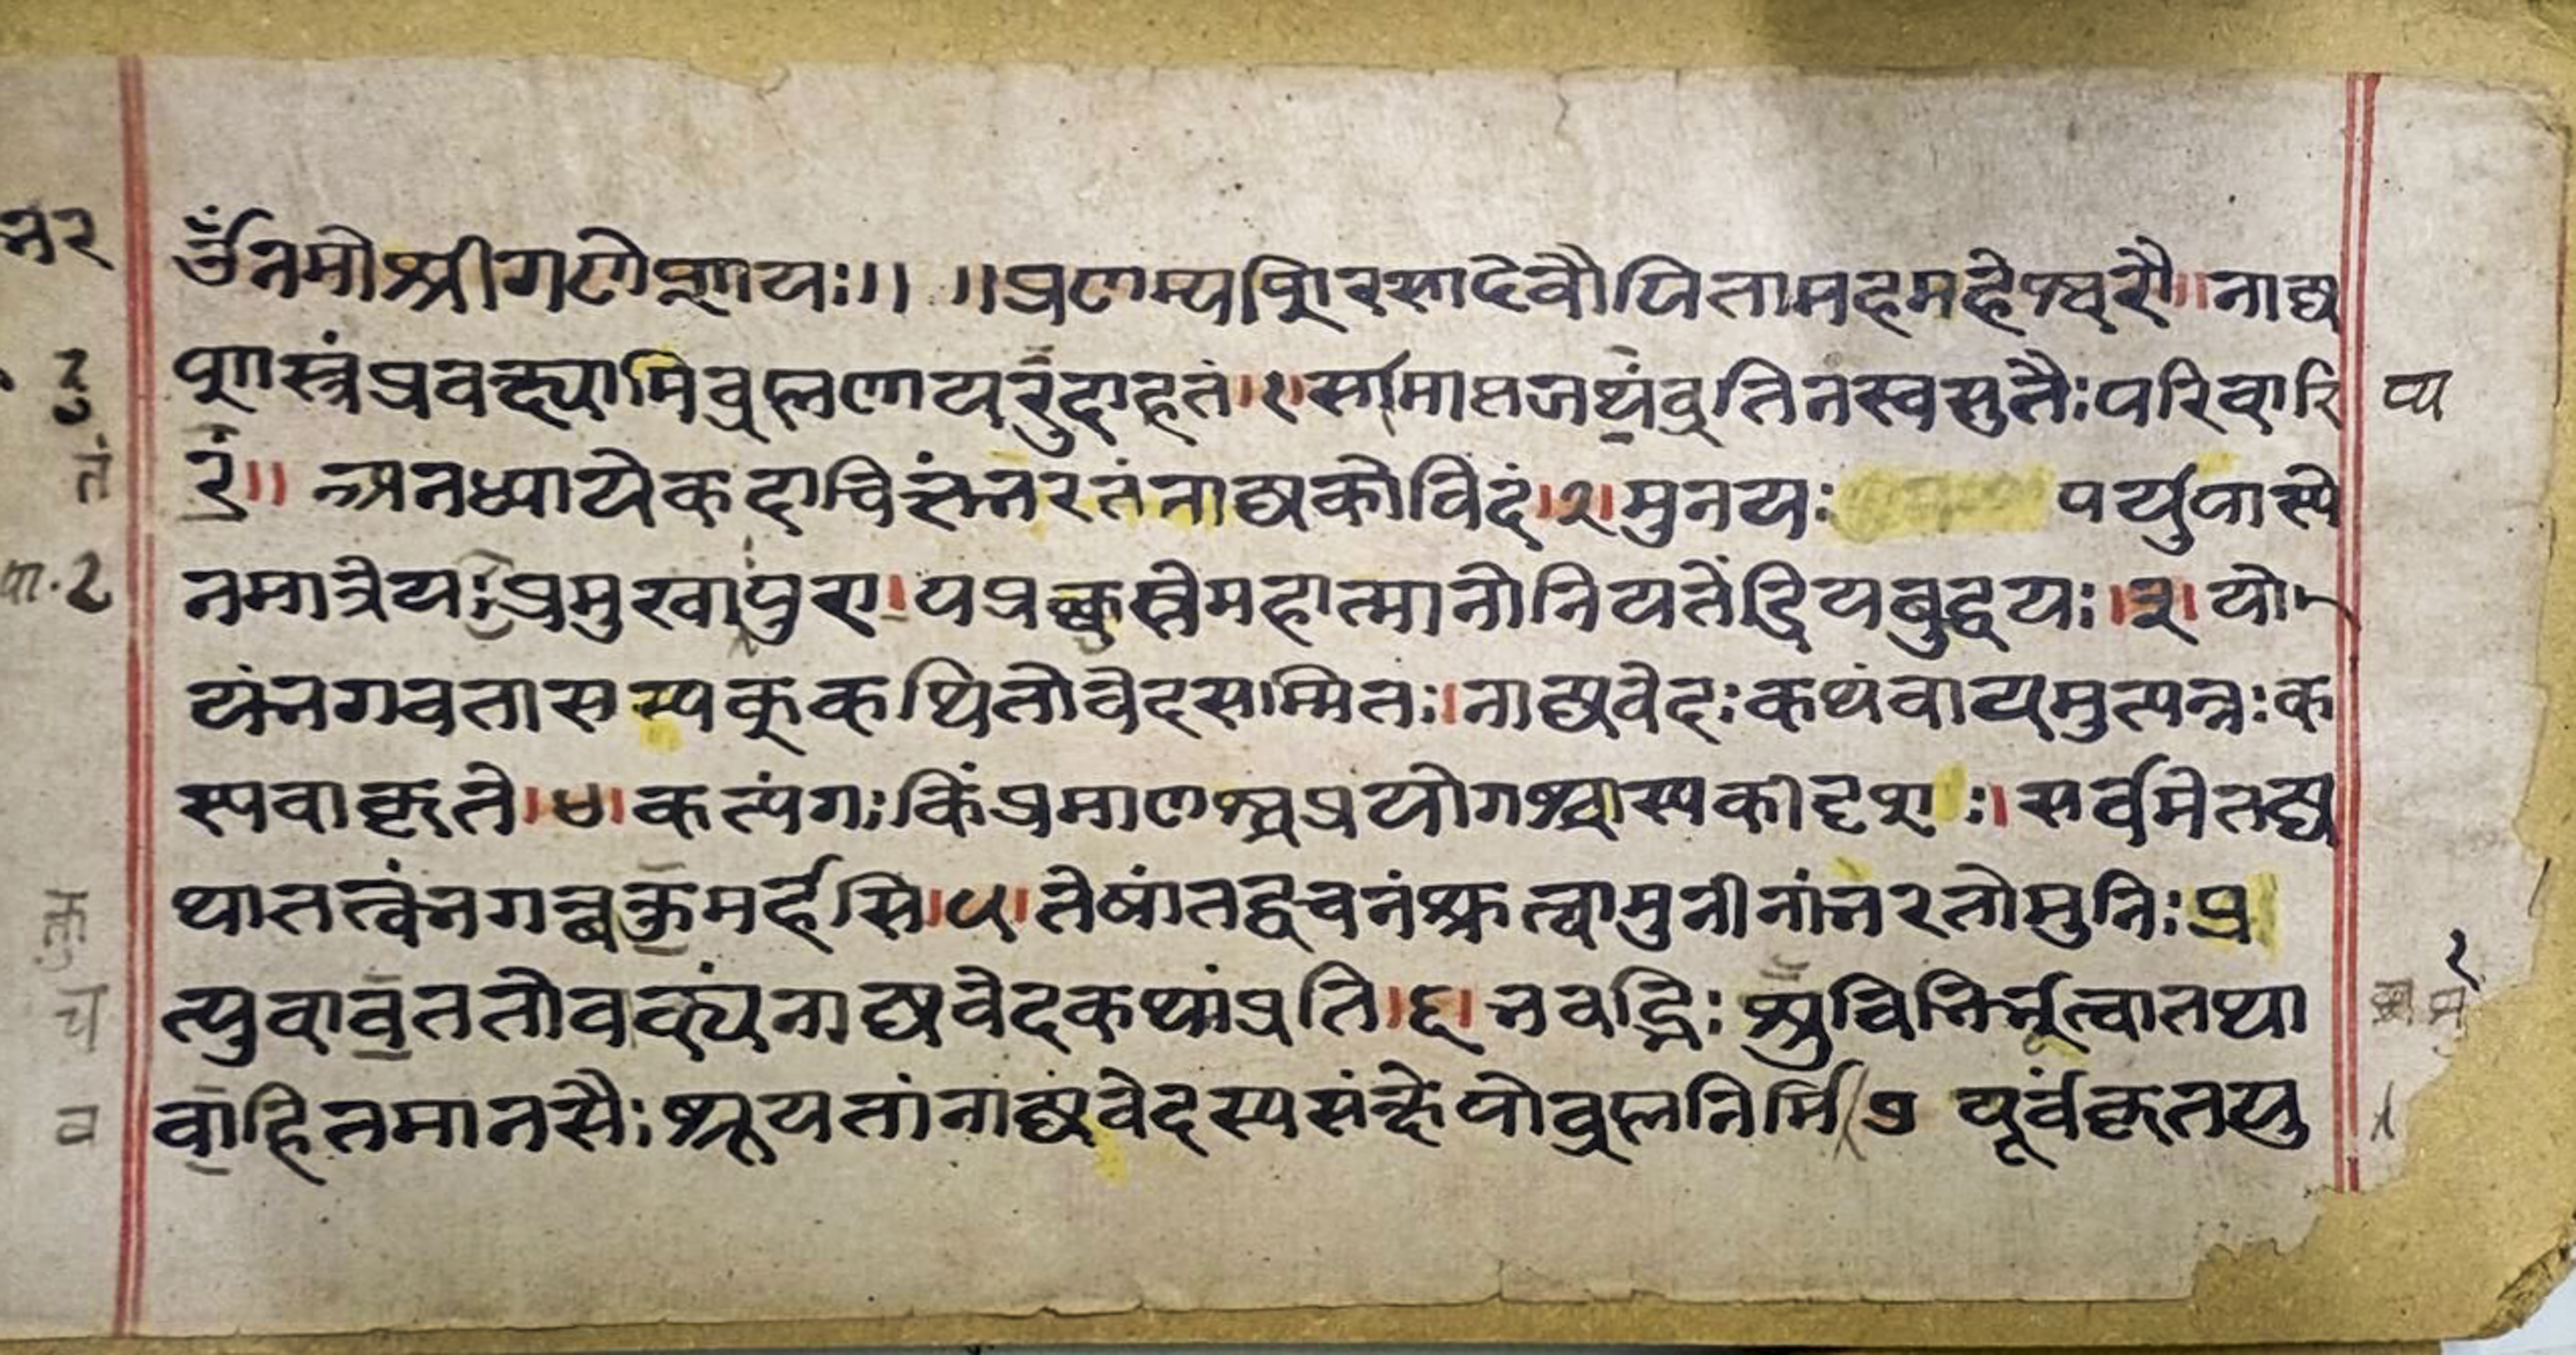 ॐनमोश्रीगणेशायः॥ ॥प्रणम्यशिरसादेवौपितामहमहेश्वरौ॥नाट्य
शास्त्रंप्रवक्ष्यामिब्रह्मणायरुदाहृतं।१।समाप्तजप्यंव्रतिनस्वसुतैःपरिवारि
तं॥अनध्यायेकदाचित्तंभरतंनाट्यकोविदं।२।मुनयः पर्युपास्ये
नमात्रेयःप्रमुखापुरा।पप्रच्छुस्तेमहात्मानोनियतेंद्रियबुद्धयः।३।यो
यंभगवतासम्यक्कथितोवेदसम्मितः।नाट्यवेदःकथंवायमुत्पन्नःक
स्यवाकृते।४।कत्यंगःकिंप्रमाणश्चप्रयोगश्चास्यकीदृशः।सर्वमेतद्य
थातत्त्वंभगवन्वक्तुमर्हसि।५।तेषांतद्वचनंश्रुत्वामुनीनांभरतोमुनिः प्र
त्युवाचततोवाक्यंनाट्यवेदकथांप्रति।६।भवद्भिःशुचिभिर्भूत्वातथा
वाहितमानसैःश्रूयतांनाट्यवेदस्यसंक्षेपोब्रह्मनिर्मि ७ पूर्वंकृतयु